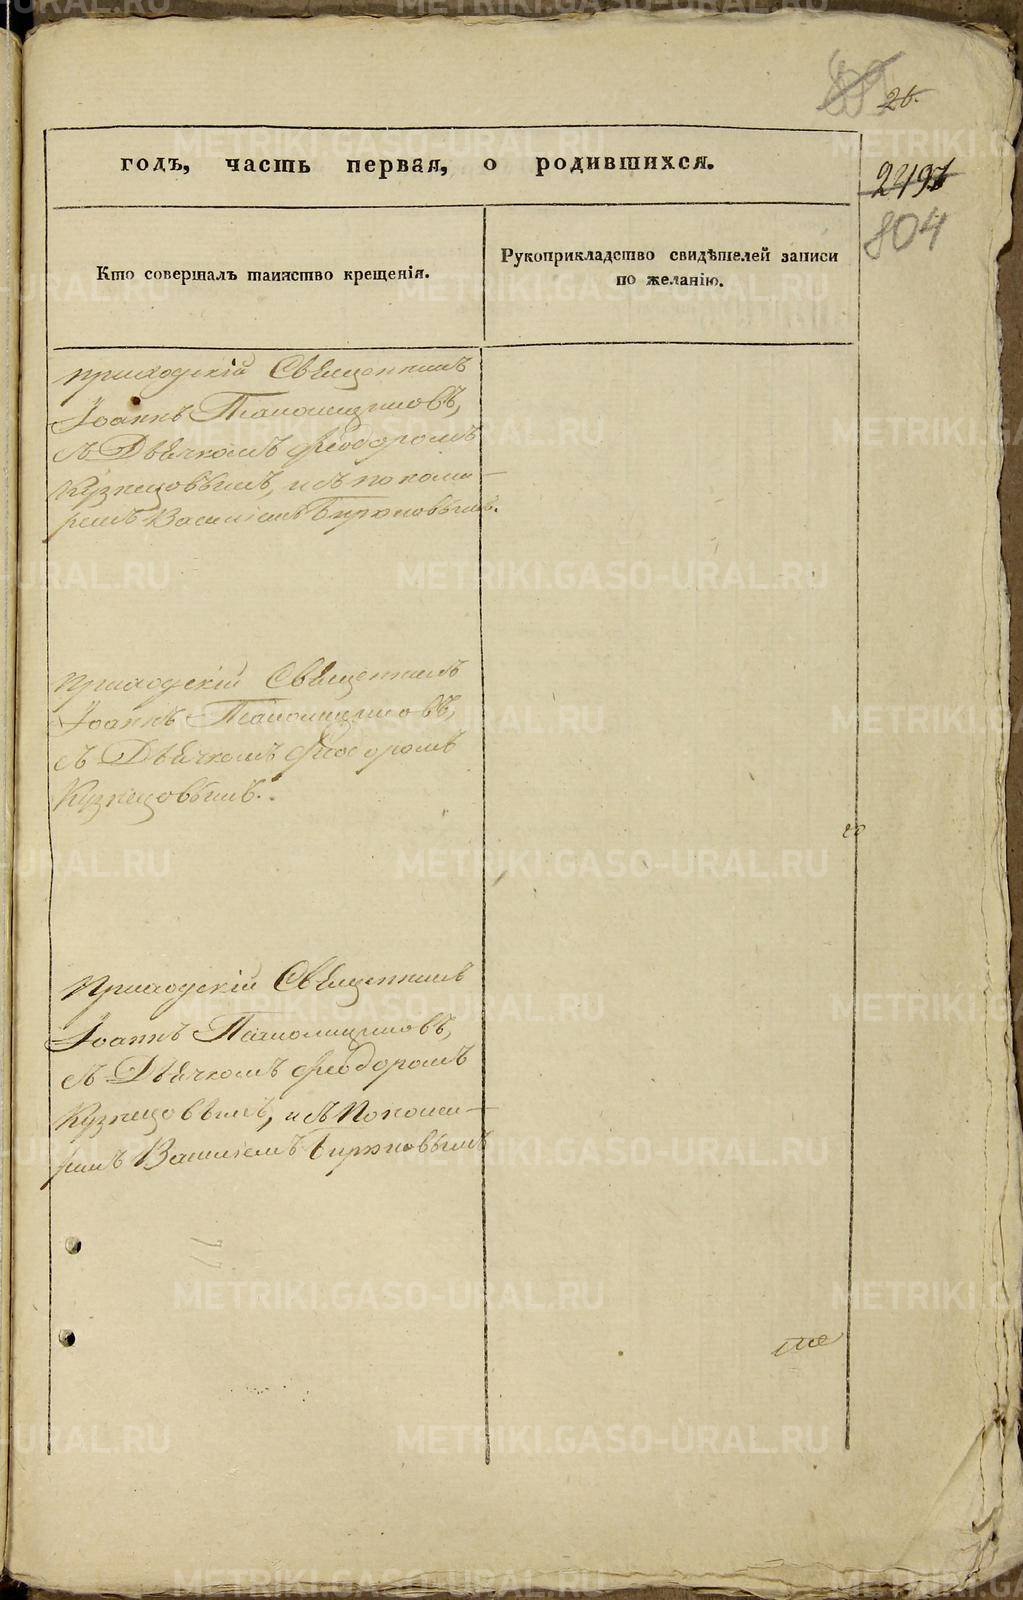 26.
годъ, часть первая, о родившихся.
2497
804
Кто совершалъ таинство крещенія.
Рукоприкладство свидѣтелей записи
по желанію.
приходскій Священникъ
Іоаннъ
съ Дьячкомъ Ѳеодоромъ
Кузнецовымъ, и съ понома-
ремъ Василіемъ Бирюковымъ.
приходскій Священникъ
Іоаннъ
съ Дьячкомъ Ѳеодоромъ
Кузнецовымъ.
Приходскій Священникъ
Іоаннъ
съ Дьячкомъ Ѳеодоромъ
Кузнецовымъ, и съ Понома-
ремъ Василіемъ Бирюковымъ
METRIKI.GASO-URAL.RU